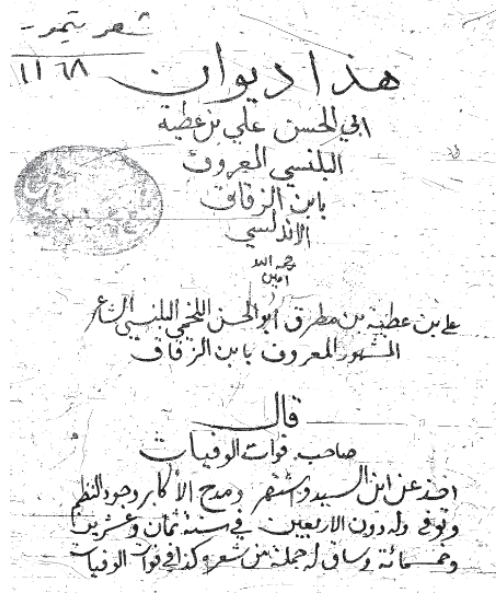 شعر تيمور
١١٦٨
هذا ديوان
ابي الحسن علي بن عطية
البلنسي المعروف
بابن الزقاق
الاندلسي
رحمه الله
امين
علي بن عطية بن مطرق ابو الحسن اللخمي البلنسي الشاعر
المشهور المعروف بابن الزقاق
قال
صاحب فوات الوفيات
اخذ عن ابن السيد واشتهر ومدح الاكابر وجود النظم
وتوفي وله دون الاربعين في سنة ثمان وعشرين
وخمسمائة وساق له جملة من شعره كذا في فوات الوفيات